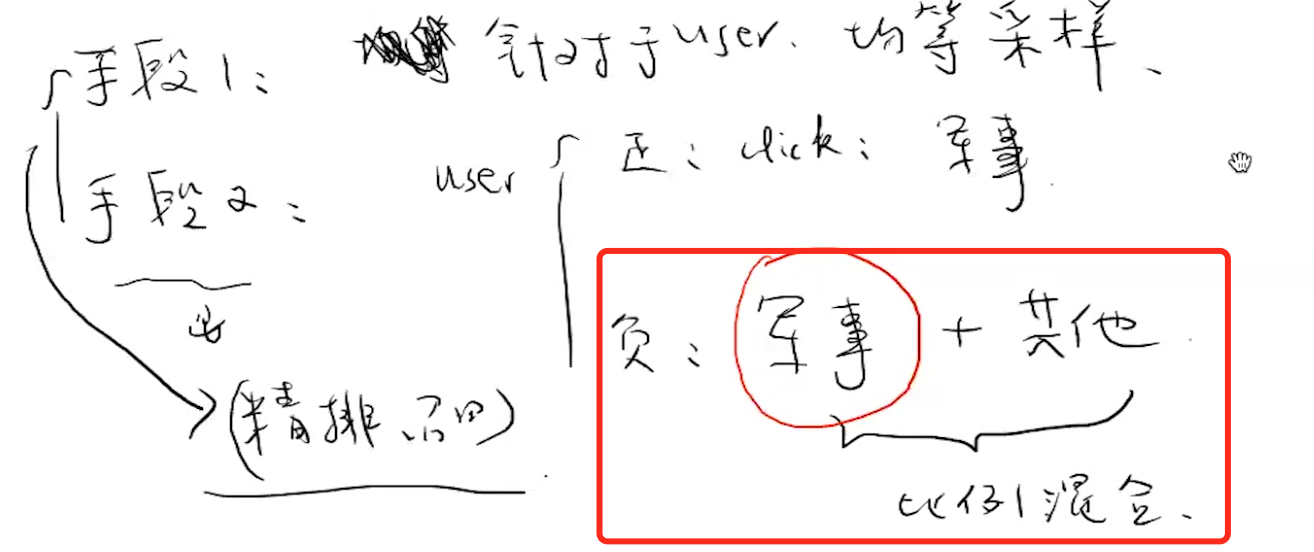 手段1: 针对于user、均等采样、
手段2:
user
正: click: 军事.
负: 军事 + 其他.
(精排 召回)
比例混合、